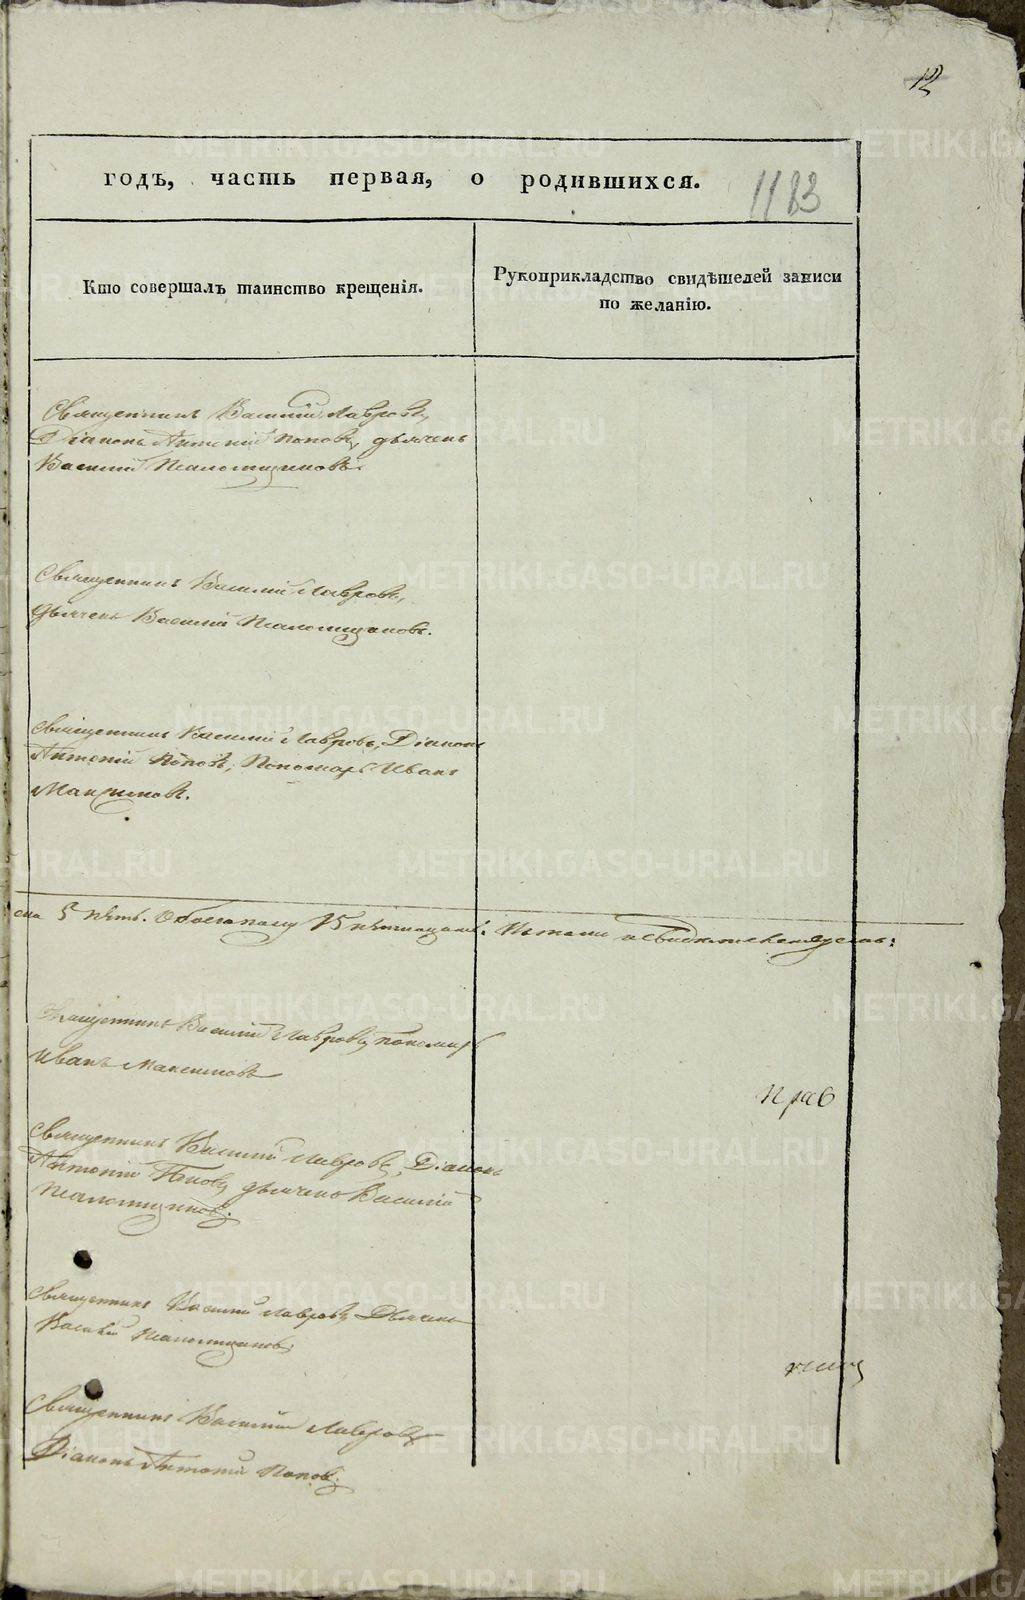 12
годъ, часть первая, о родившихся.
1183
Кто совершалъ таинство крещенія.
Рукоприкладство свидѣтелей записи
по желанію.
Священникъ Василій Лавровъ,
Діаконъ Антоній Поповъ, дьячекъ
Василій
Священникъ Василій Лавровъ,
Дьячекъ Василій
Священникъ Василій Лавровъ, Діаконъ
Антоній Поповъ, Пономарь Иванъ
Максимовъ.
5 пять. Обоего полу
Священникъ Василій Лавровъ, пономарь
Иванъ Максимовъ
Священникъ Василій Лавровъ, Діаконъ
Антоній Поповъ, дьячекъ Василій
Священникъ Василій Лавровъ, Дьячекъ
Василій
Священникъ Василій Лавровъ
Діаконъ Антоній Поповъ.
METRIKI.GASO-URAL.RU